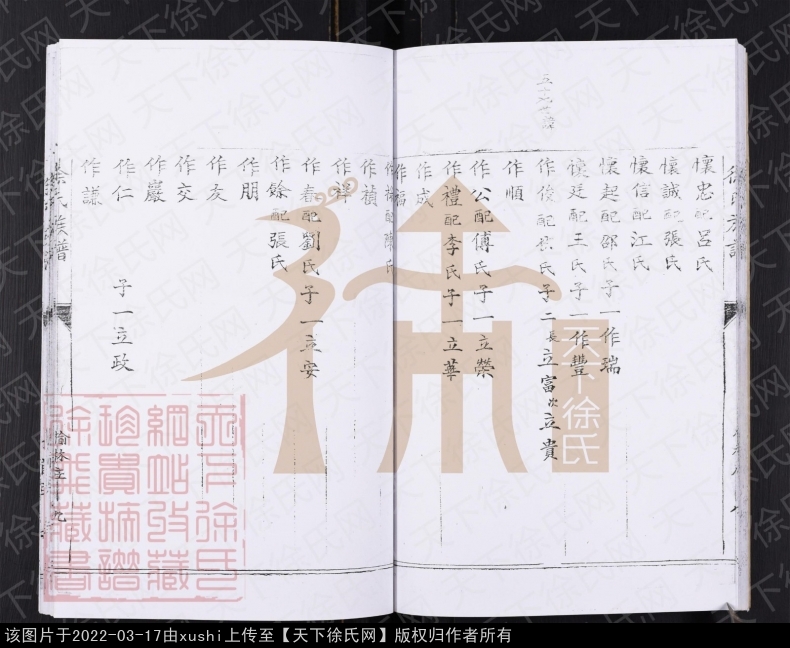 徐氏族譜
懷忠配呂氏
懷誠配張氏
懷信配江氏
懷起配邵氏子一作瑞
懷廷配王氏子一作豐
作俊配 氏子二長立富次立貴
作順
作公配傅氏子一立榮
作禮配李氏子一立華
作成
作福
作 配陳氏
作禎
作祥
作春配劉氏子一立安
作餘配張氏
作朋
作友
作交
作慶
作仁 子一立政
作謙
徐氏族譜
榆林 九
天下徐氏
天下徐氏网
天下徐氏
網站收藏
珍貴摘譜
徐氏藏書
该图片于2022-03-17由xushi上传至【天下徐氏网】版权归作者所有